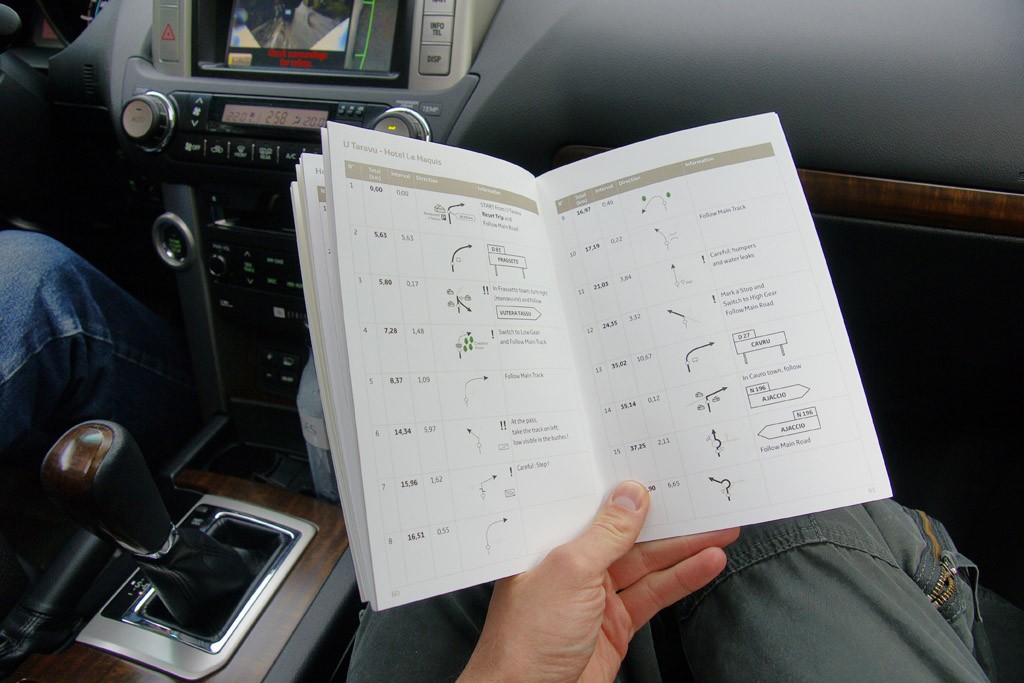 INFO
TEL
DISP
TEMP
AUTO
258
20.0
A/C
U Taravu - Hotel Le Maquis
N° Total (km) Interval Direction Information
1 0,00 0,00 START from U Taravu
Reset Trip and
Follow Main Road
2 5,63 5,63 D 83
FRASSETO
3 5,80 0,17 !! In Frassetto town, turn right
(manoeuvre) and follow
VUTERA TASSU
4 7,28 1,48 ! Switch to Low Gear
and Follow Main Track
5 8,37 1,09 Follow Main Track
6 14,34 5,97 !! At the pass,
take the track on left,
low visible in the bushes !
7 15,96 1,62 ! Careful : Step !
8 16,51 0,55
60
N° Total (km) Interval Direction Information
9 16,97 0,46 Follow Main Track
10 17,19 0,22
11 21,03 3,84 ! Careful: humpers
and water leaks
12 24,35 3,32 ! Mark a Stop and
Switch to High Gear
Follow Main Road
13 35,02 10,67 D 27
CAVRU
14 35,14 0,12 In Cauro town, follow
N 196
AJACCIO
15 37,25 2,11 N 196
AJACCIO
Follow Main Road
90 6,65
61